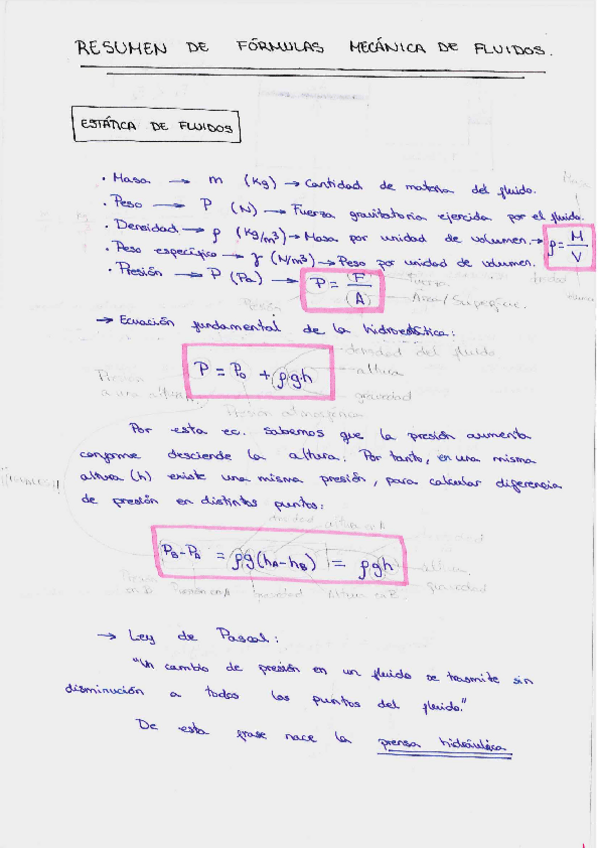 RESUMEN DE FÓRMULAS MECÁNICA DE FLUIDOS.
ESTÁTICA DE FLUIDOS
· Masa → m (Kg) → Cantidad de materia del fluido.
· Peso → P (N) → Fuerza gravitatoria ejercida por el fluido.
· Densidad → ρ (Kg/m³) → Masa por unidad de volumen. → ρ = M/V
· Peso específico → γ (N/m³) → Peso por unidad de volumen.
· Presión → P (Pa) → P = F/A
Fuerza
Área/Superficie.
→ Ecuación fundamental de la hidrostática:
densidad del fluido
P = P₀ + ρ·g·h
altura
Presión a una altura
gravedad
Presión atmosférica
Por esta ec. sabemos que la presión aumenta
conforme desciende la altura. Por tanto, en una misma
altura (h) existe una misma presión, para calcular diferencia
de presión en distintos puntos:
densidad altura en A
P_B - P_A = ρg(h_A - h_B) = ρgh
altura
Presión en B Presión en A gravedad altura en B gravedad
→ Ley de Pascal:
"Un cambio de presión en un fluido se trasmite sin
disminución a todos los puntos del fluido."
De esta frase nace la prensa hidráulica